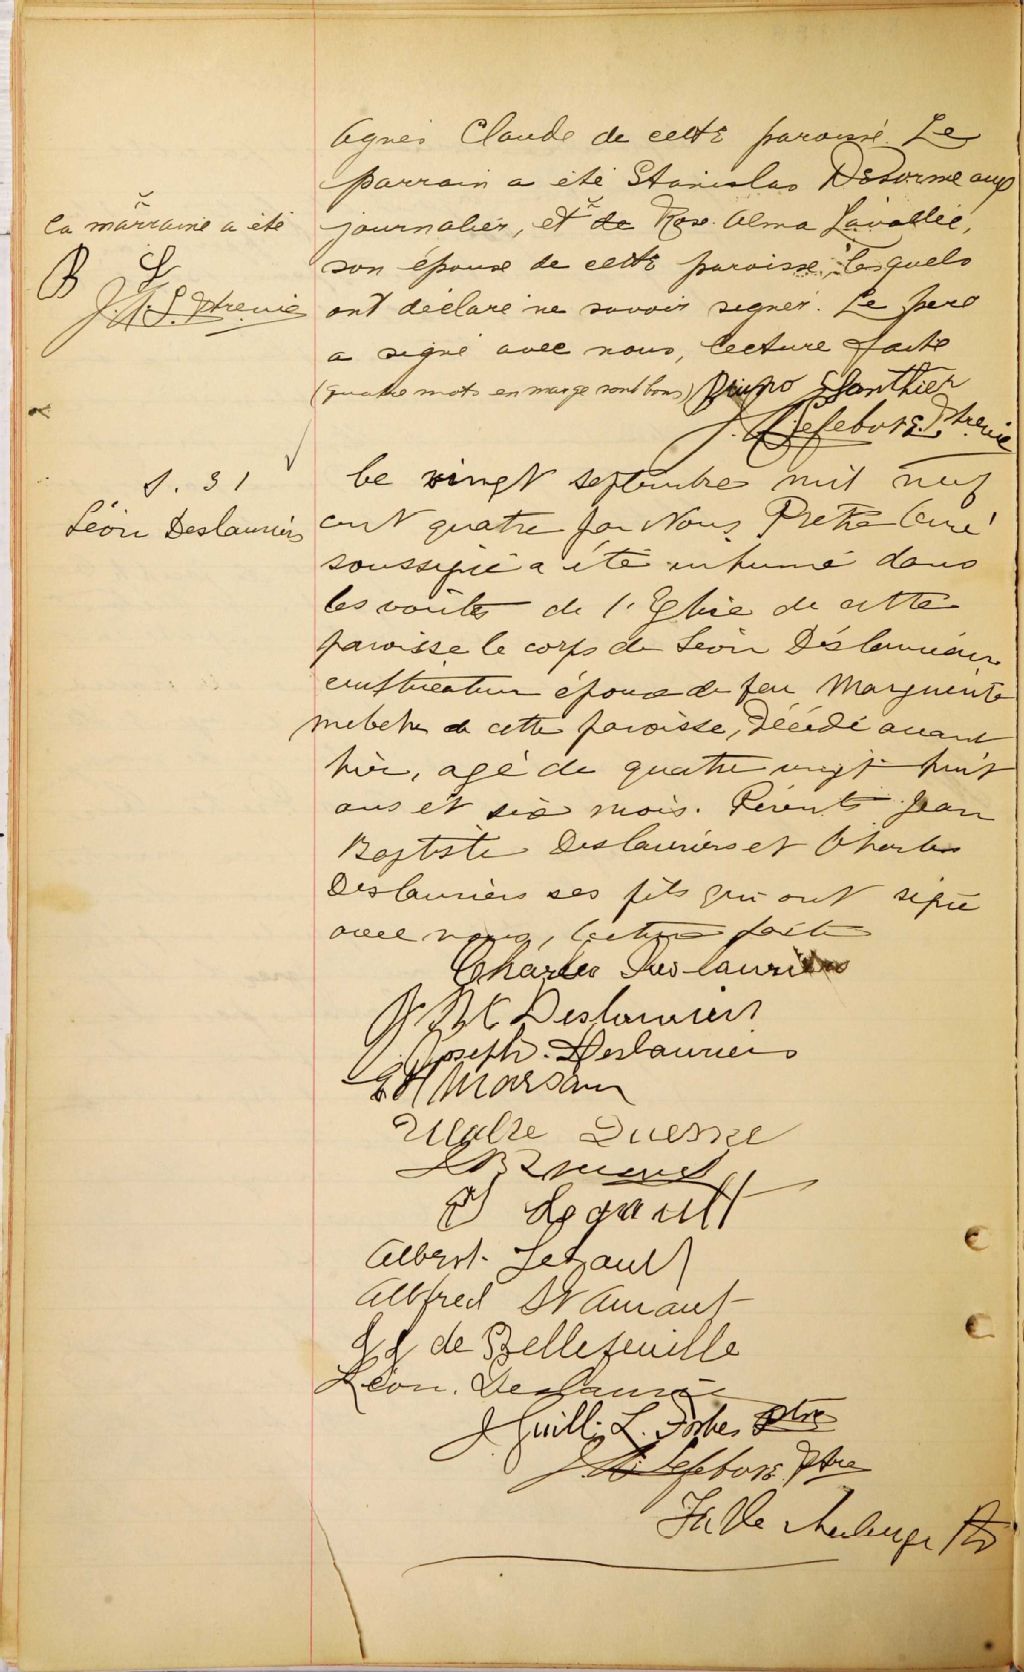 Agnès Claude de cette paroisse. Le
parrain a été Stanislas Desormeaux
la marraine a été
journalier, et de Rose Alma Lavallée,
son épouse de cette paroisse, lesquels
ont déclaré ne savoir signer. Le père
a signé avec nous, lecture faite
(quatre mots en marge sont bons) Bruno Gauthier
J. Lefebvre Ptre curé
S. 31
Léon Deslauriers
Le vingt septembre mil neuf
cent quatre par Nous Prêtre Curé
soussigné a été inhumé dans
les voûtes de l'Eglise de cette
paroisse le corps de Léon Deslauriers
cultivateur époux de feu Marguerite
de cette paroisse, décédé avant
hier, agé de quatre vingt huit
ans et six mois. Présents Jean
Baptiste Deslauriers et Charles
Deslauriers ses fils qui ont signé
avec nous, lecture faite
Charles Deslauriers
J Bt Deslauriers
Joseph Deslauriers
Duesne
Legault
Albert Legault
Alfred St Amant
J J de Bellefeuille
Léon Deslauriers
J Guill. L. Forbes ptre
J. Lefebvre Ptre